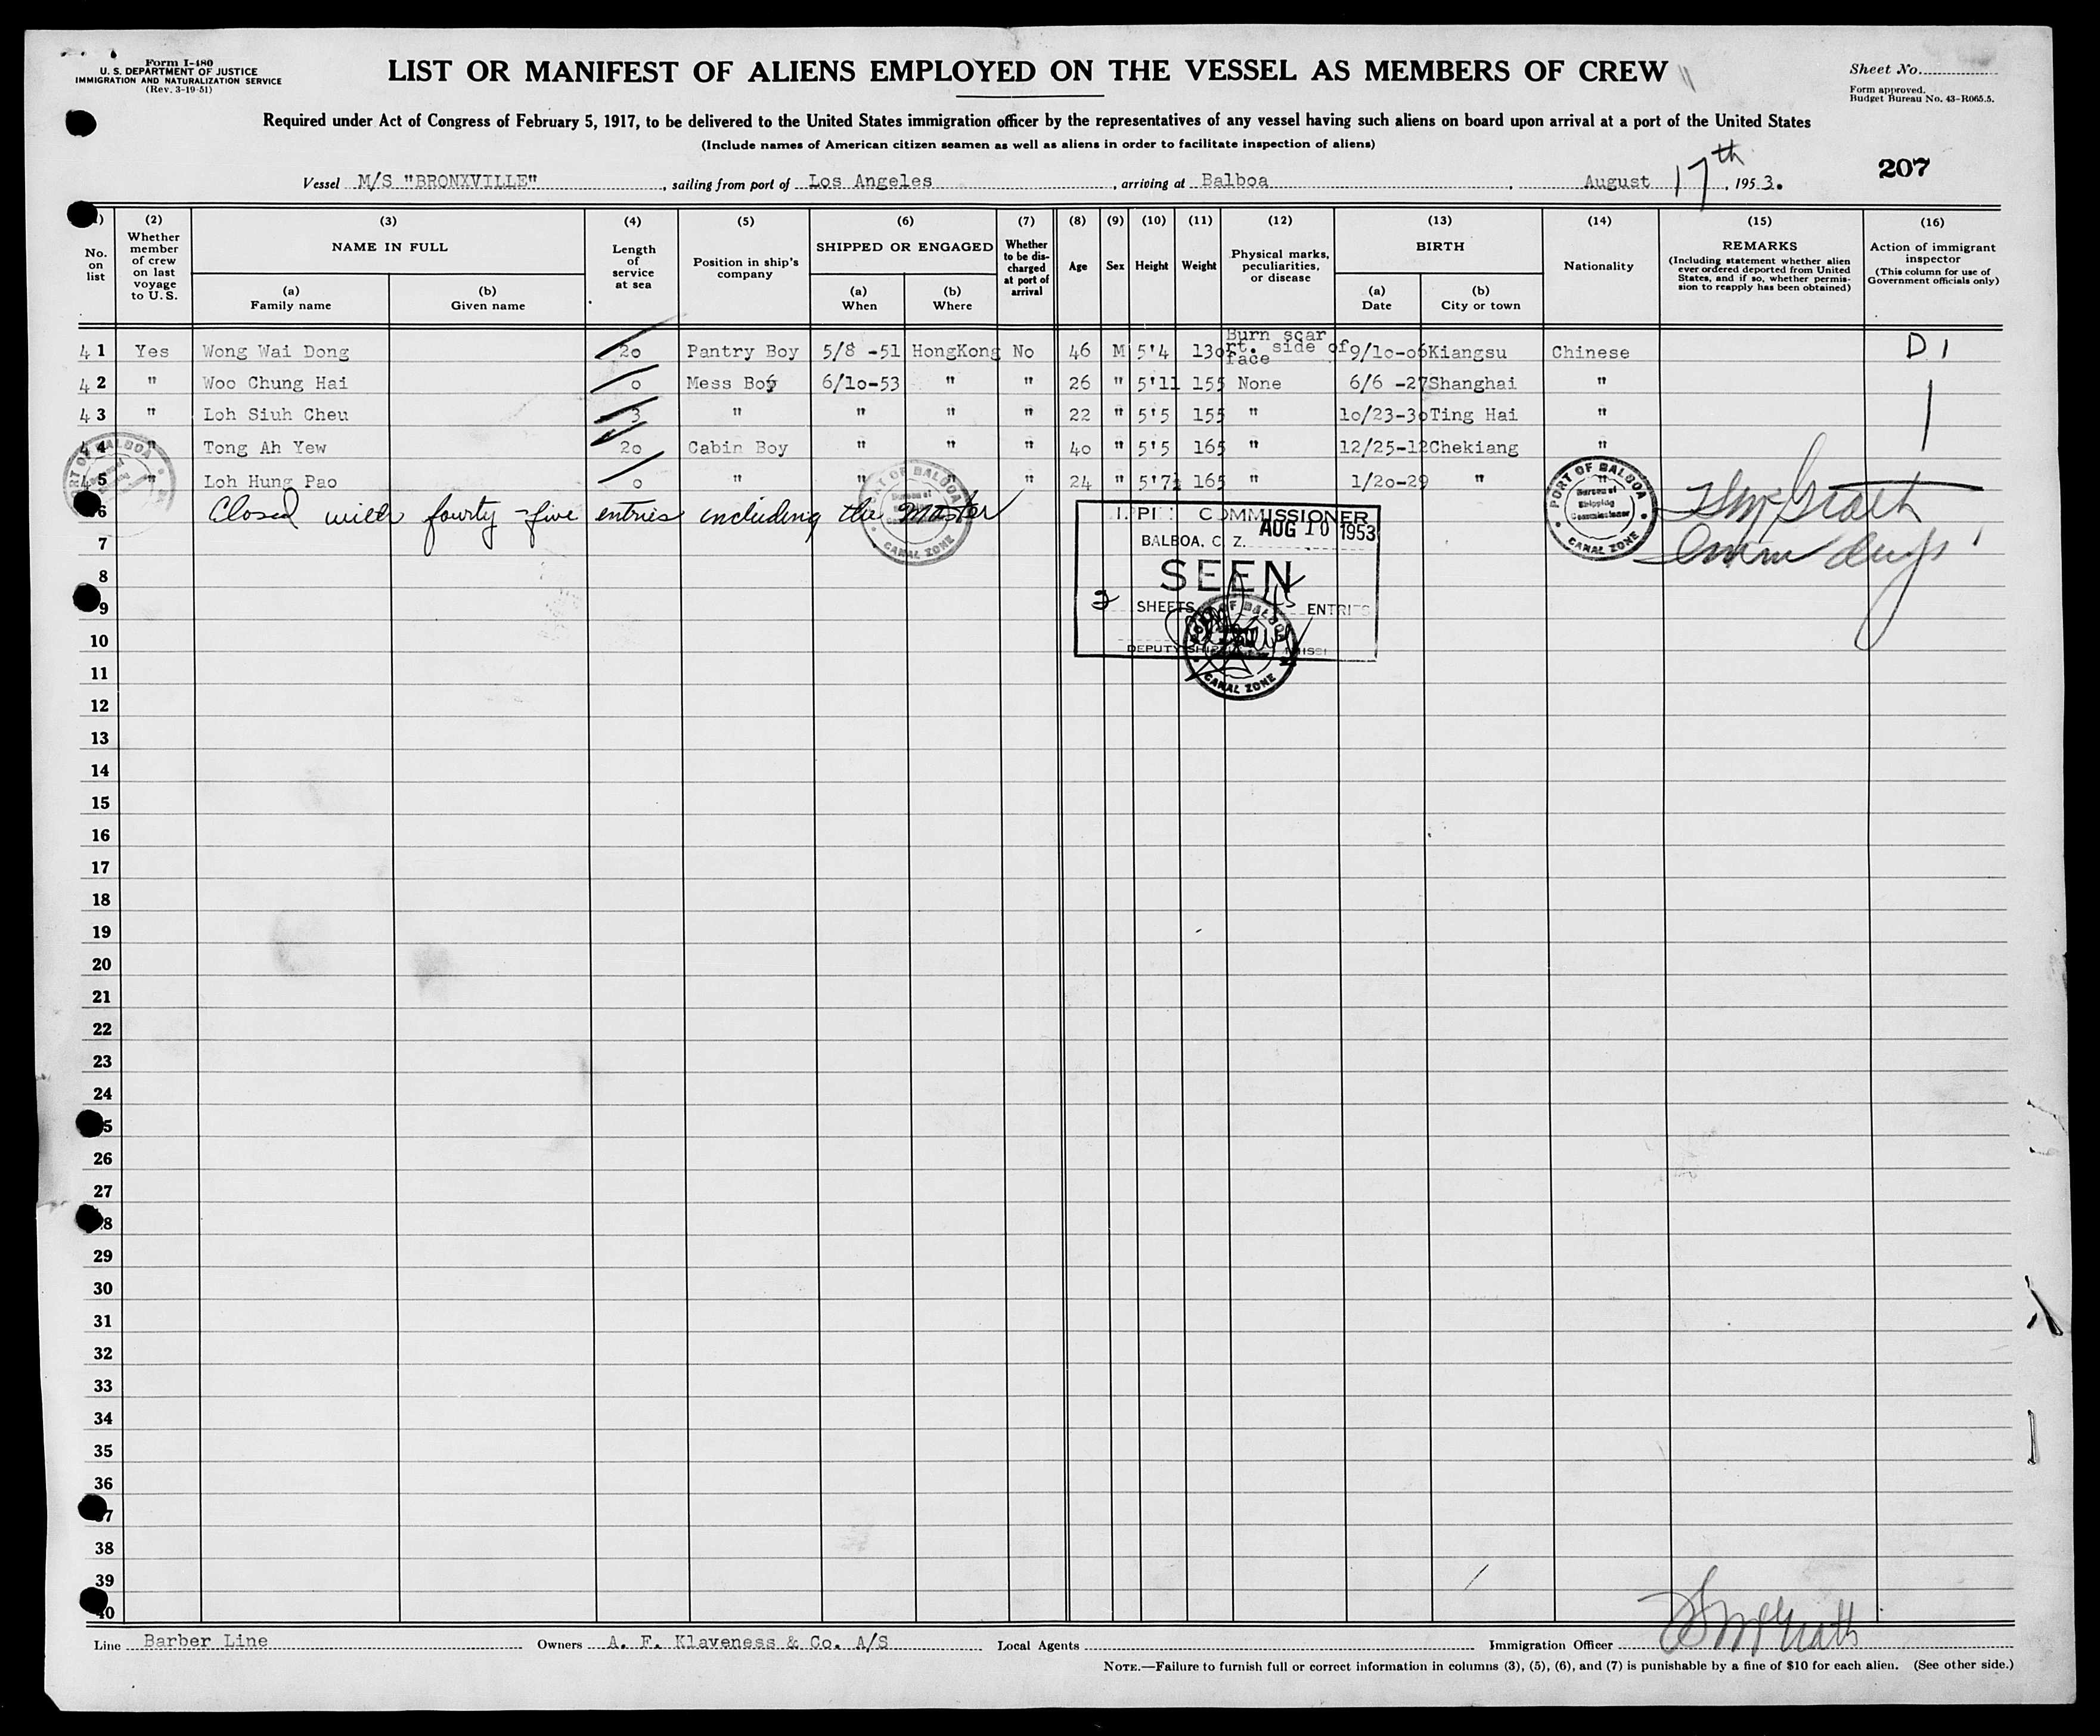 Form I-480
U. S. DEPARTMENT OF JUSTICE
IMMIGRATION AND NATURALIZATION SERVICE
(Rev. 3-19-51)
LIST OR MANIFEST OF ALIENS EMPLOYED ON THE VESSEL AS MEMBERS OF CREW
Sheet No.
Form approved.
Budget Bureau No. 43-R065.5.
Required under Act of Congress of February 5, 1917, to be delivered to the United States immigration officer by the representatives of any vessel having such aliens on board upon arrival at a port of the United States
(Include names of American citizen seamen as well as aliens in order to facilitate inspection of aliens)
207
Vessel M/S "BRONXVILLE", sailing from port of Los Angeles, arriving at Balboa, August 17th, 1953.
(2) (3) (4) (5) (6) (7) (8) (9) (10) (11) (12) (13) (14) (15) (16)
No. on list
Whether member of crew on last voyage to U. S.
NAME IN FULL
(a) Family name
(b) Given name
Length of service at sea
Position in ship's company
SHIPPED OR ENGAGED
(a) When
(b) Where
Whether to be discharged at port of arrival
Age
Sex
Height
Weight
Physical marks, peculiarities, or disease
BIRTH
(a) Date
(b) City or town
Nationality
REMARKS
(Including statement whether alien ever ordered deported from United States, and if so, whether permission to reapply has been obtained)
Action of immigrant inspector
(This column for use of Government officials only)
41 Yes Wong Wai Dong 20 Pantry Boy 5/8 -51 HongKong No 46 M 5'4 130 Burn scar rt. side of face 9/10-06 Kiangsu Chinese D 1
42 " Woo Chung Hai 0 Mess Boy 6/10-53 " " 26 " 5'11 155 None 6/6 -27 Shanghai "
43 " Loh Siuh Cheu 3 " " " " 22 " 5'5 155 " 10/23-30 Ting Hai "
44 " Tong Ah Yew 20 Cabin Boy " " " 40 " 5'5 165 " 12/25-12 Chekiang "
45 " Loh Hung Pao 0 " " " " 24 " 5'7½ 165 " 1/20-29 " "
6 Closed with fourty-five entries including the master
PORT OF BALBOA
Bureau of Shipping Commissioner
CANAL ZONE
COMMISSIONER
BALBOA, C. Z. AUG 10 1953
SEEN
2 SHEETS 45 ENTRIES
DEPUTY
CANAL ZONE
McGrath
7
8
9
10
11
12
13
14
15
16
17
18
19
20
21
22
23
24
5
26
27
8
29
30
31
32
33
34
35
36
7
38
39
40
Line Barber Line Owners A. F. Klaveness & Co. A/S Local Agents Immigration Officer McGrath
NOTE.—Failure to furnish full or correct information in columns (3), (5), (6), and (7) is punishable by a fine of $10 for each alien. (See other side.)